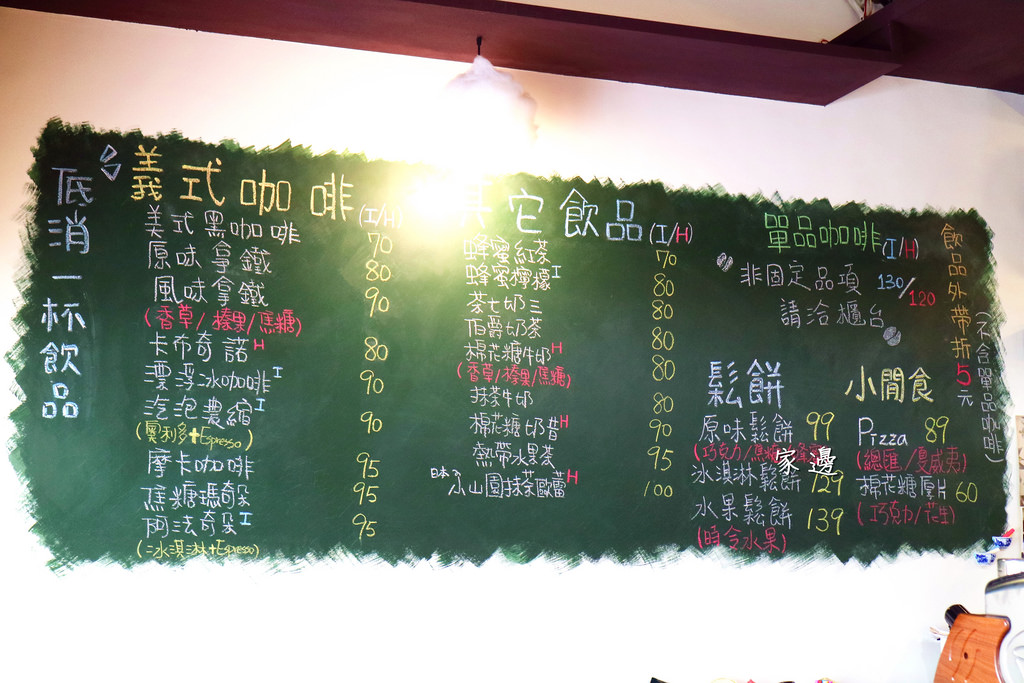 低消一杯飲品
義式咖啡(I/H)
美式黑咖啡 70
原味拿鐵 80
風味拿鐵 90
(香草/榛果/焦糖)
卡布奇諾H 80
漂浮冰咖啡I 90
泡濃縮I 90
(奧利多+Espresso)
摩卡咖啡 95
焦糖瑪奇朵 95
阿法奇朵I 95
(冰淇淋+Espresso)
其它飲品(I/H)
蜂蜜紅茶 70
蜂蜜檸檬I 80
茶七奶三 80
伯爵奶茶 80
棉花糖牛奶H 80
(香草/榛果/焦糖)
抹茶牛奶 80
棉花糖奶昔H 90
熱帶水果茶 95
日本小山園抹茶歐蕾H 100
單品咖啡(I/H)
非固定品項 130/120
請洽櫃台
鬆餅
原味鬆餅 99
(巧克力/焦糖/
冰淇淋鬆餅 129
水果鬆餅 139
(時令水果)
小閒食
Pizza 89
(總匯/夏威夷)
棉花糖厚片 60
(巧克力/花生)
飲品外帶折5元
(不含單品咖啡)
家 邊